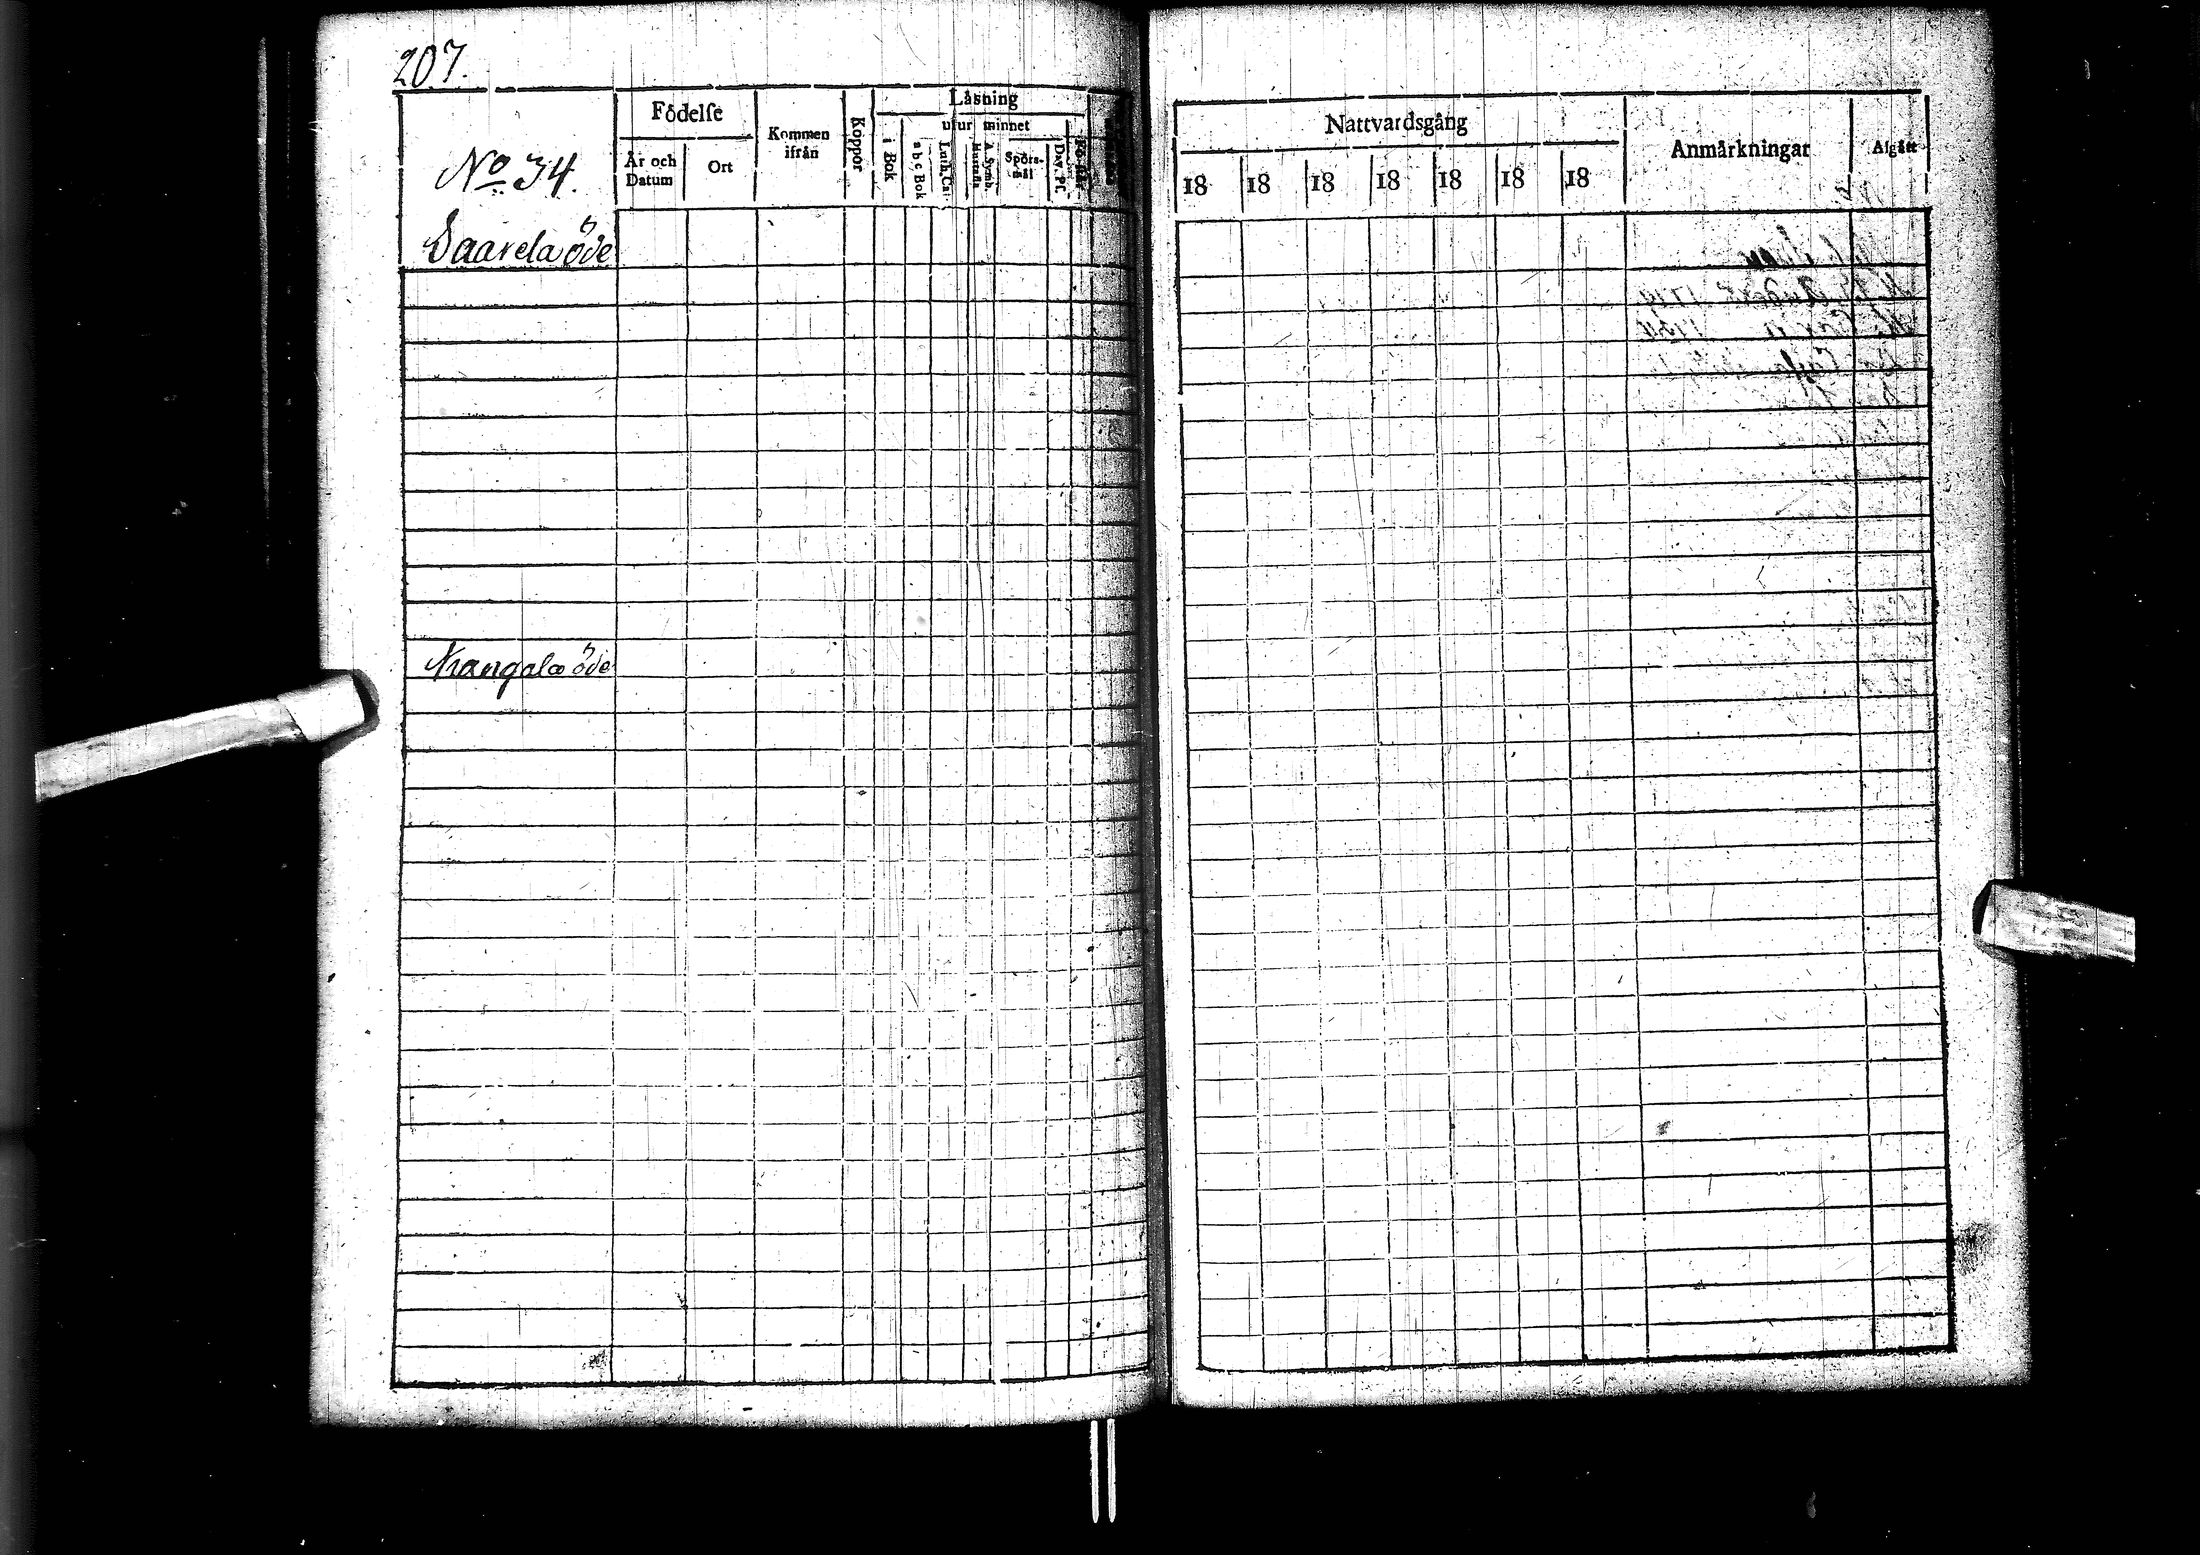 207.
No 34.
Födelse
År och Datum
Ort
Kommen ifrån
Koppor
Läsning
utur minnet
i Bok
a b c Bok
Luth. Cat.
Hustafla
A. Symb.
Spörs-mål
Dav. Ps.
Nattvardsgång
18 18 18 18 18 18 18
Anmärkningar
Afgått
Saarela öde
öde